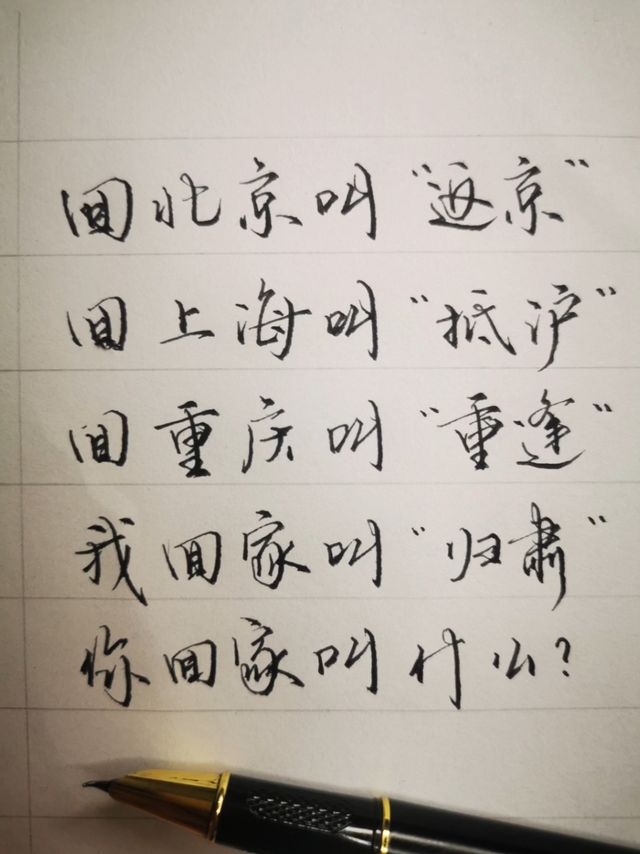 回北京叫“返京”
回上海叫“抵沪”
回重庆叫“重逢”
我回家叫“归肃”
你回家叫什么?